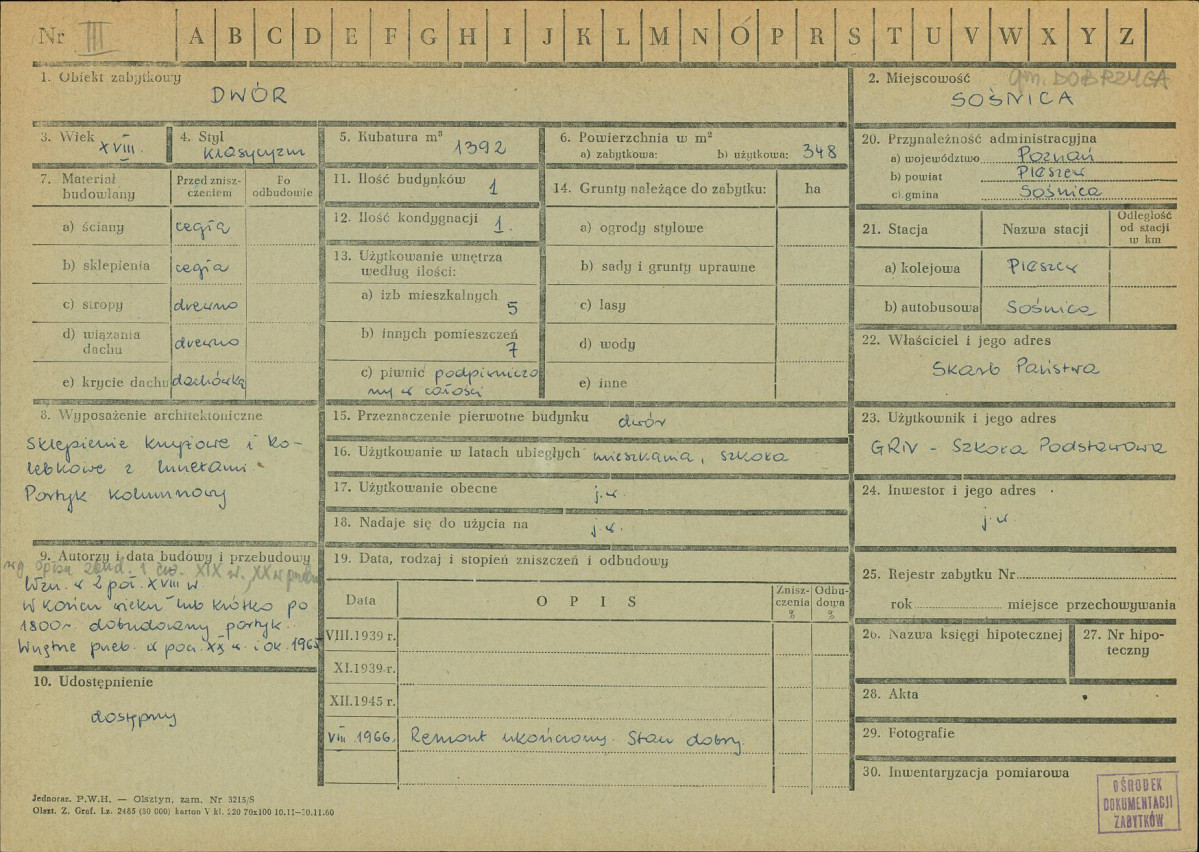 Nr III A B C D E F G H I J K L M N O P R S T U V W X Y Z
1. Obiekt zabytkowy
DWÓR
2. Miejscowość gm. DOBRZYCA
SOŚNICA
3. Wiek
XVIII.
4. Styl
Klasycyzm
5. Kubatura m³
1392
6. Powierzchnia w m²
a) zabytkowa: b) użytkowa: 348
20. Przynależność administracyjna
a) województwo Poznań
b) powiat Pleszew
c) gmina Sośnica
7. Materiał budowlany
Przed zniszczeniem
Po odbudowie
a) ściany cegła
b) sklepienia cegła
c) stropy drewno
d) wiązania dachu drewno
e) krycie dachu dachówka
11. Ilość budynków 1
12. Ilość kondygnacji 1.
13. Użytkowanie wnętrza
według ilości:
a) izb mieszkalnych 5
b) innych pomieszczeń 7
c) piwnic podpiwniczo
ny w całości
14. Grunty należące do zabytku: ha
a) ogrody stylowe
b) sady i grunty uprawne
c) lasy
d) wody
e) inne
21. Stacja
Nazwa stacji
Odległość
od stacji
w km
a) kolejowa Pleszew
b) autobusowa Sośnica
22. Właściciel i jego adres
Skarb Państwa
8. Wyposażenie architektoniczne
Sklepienie krzyżowe i ko-
lebkowe z lunetami.
Portyk kolumnowy
15. Przeznaczenie pierwotne budynku dwór
16. Użytkowanie w latach ubiegłych mieszkania, szkoła
17. Użytkowanie obecne j.w.
18. Nadaje się do użycia na j.w.
23. Użytkownik i jego adres
GRN - Szkoła Podstawowa
24. Inwestor i jego adres
j.w.
9. Autorzy i data budowy i przebudowy
wg opisu 1 ćw. XIX w., XX w
Wzn. w 2 poł. XVIII w.
W końcu wieku lub krótko po
1800r. dobudowany portyk.
Wnętrze przeb. w poł. XX w. i ok. 1965
10. Udostępnienie
dostępny
19. Data, rodzaj i stopień zniszczeń i odbudowy
Data
OPIS
Zniszczenia %
Odbudowa %
VIII.1939 r.
XI.1939 r.
XII.1945 r.
VIII 1966. Remont ukończony. Stan dobry.
25. Rejestr zabytku Nr
rok miejsce przechowywania
26. Nazwa księgi hipotecznej
27. Nr hipo-
teczny
28. Akta
29. Fotografie
30. Inwentaryzacja pomiarowa
OŚRODEK
DOKUMENTACJI
ZABYTKÓW
Jednoraz. P.W.H. — Olsztyn, zam. Nr 3215/S
Olszt. Z. Graf. Lz. 2485 (30 000) karton V kl. 220 70x100 10.11—30.11.60